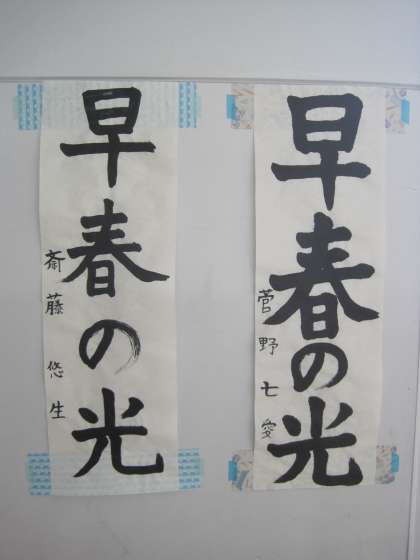 早春の光
菅野七愛
早春の光
斎藤悠生